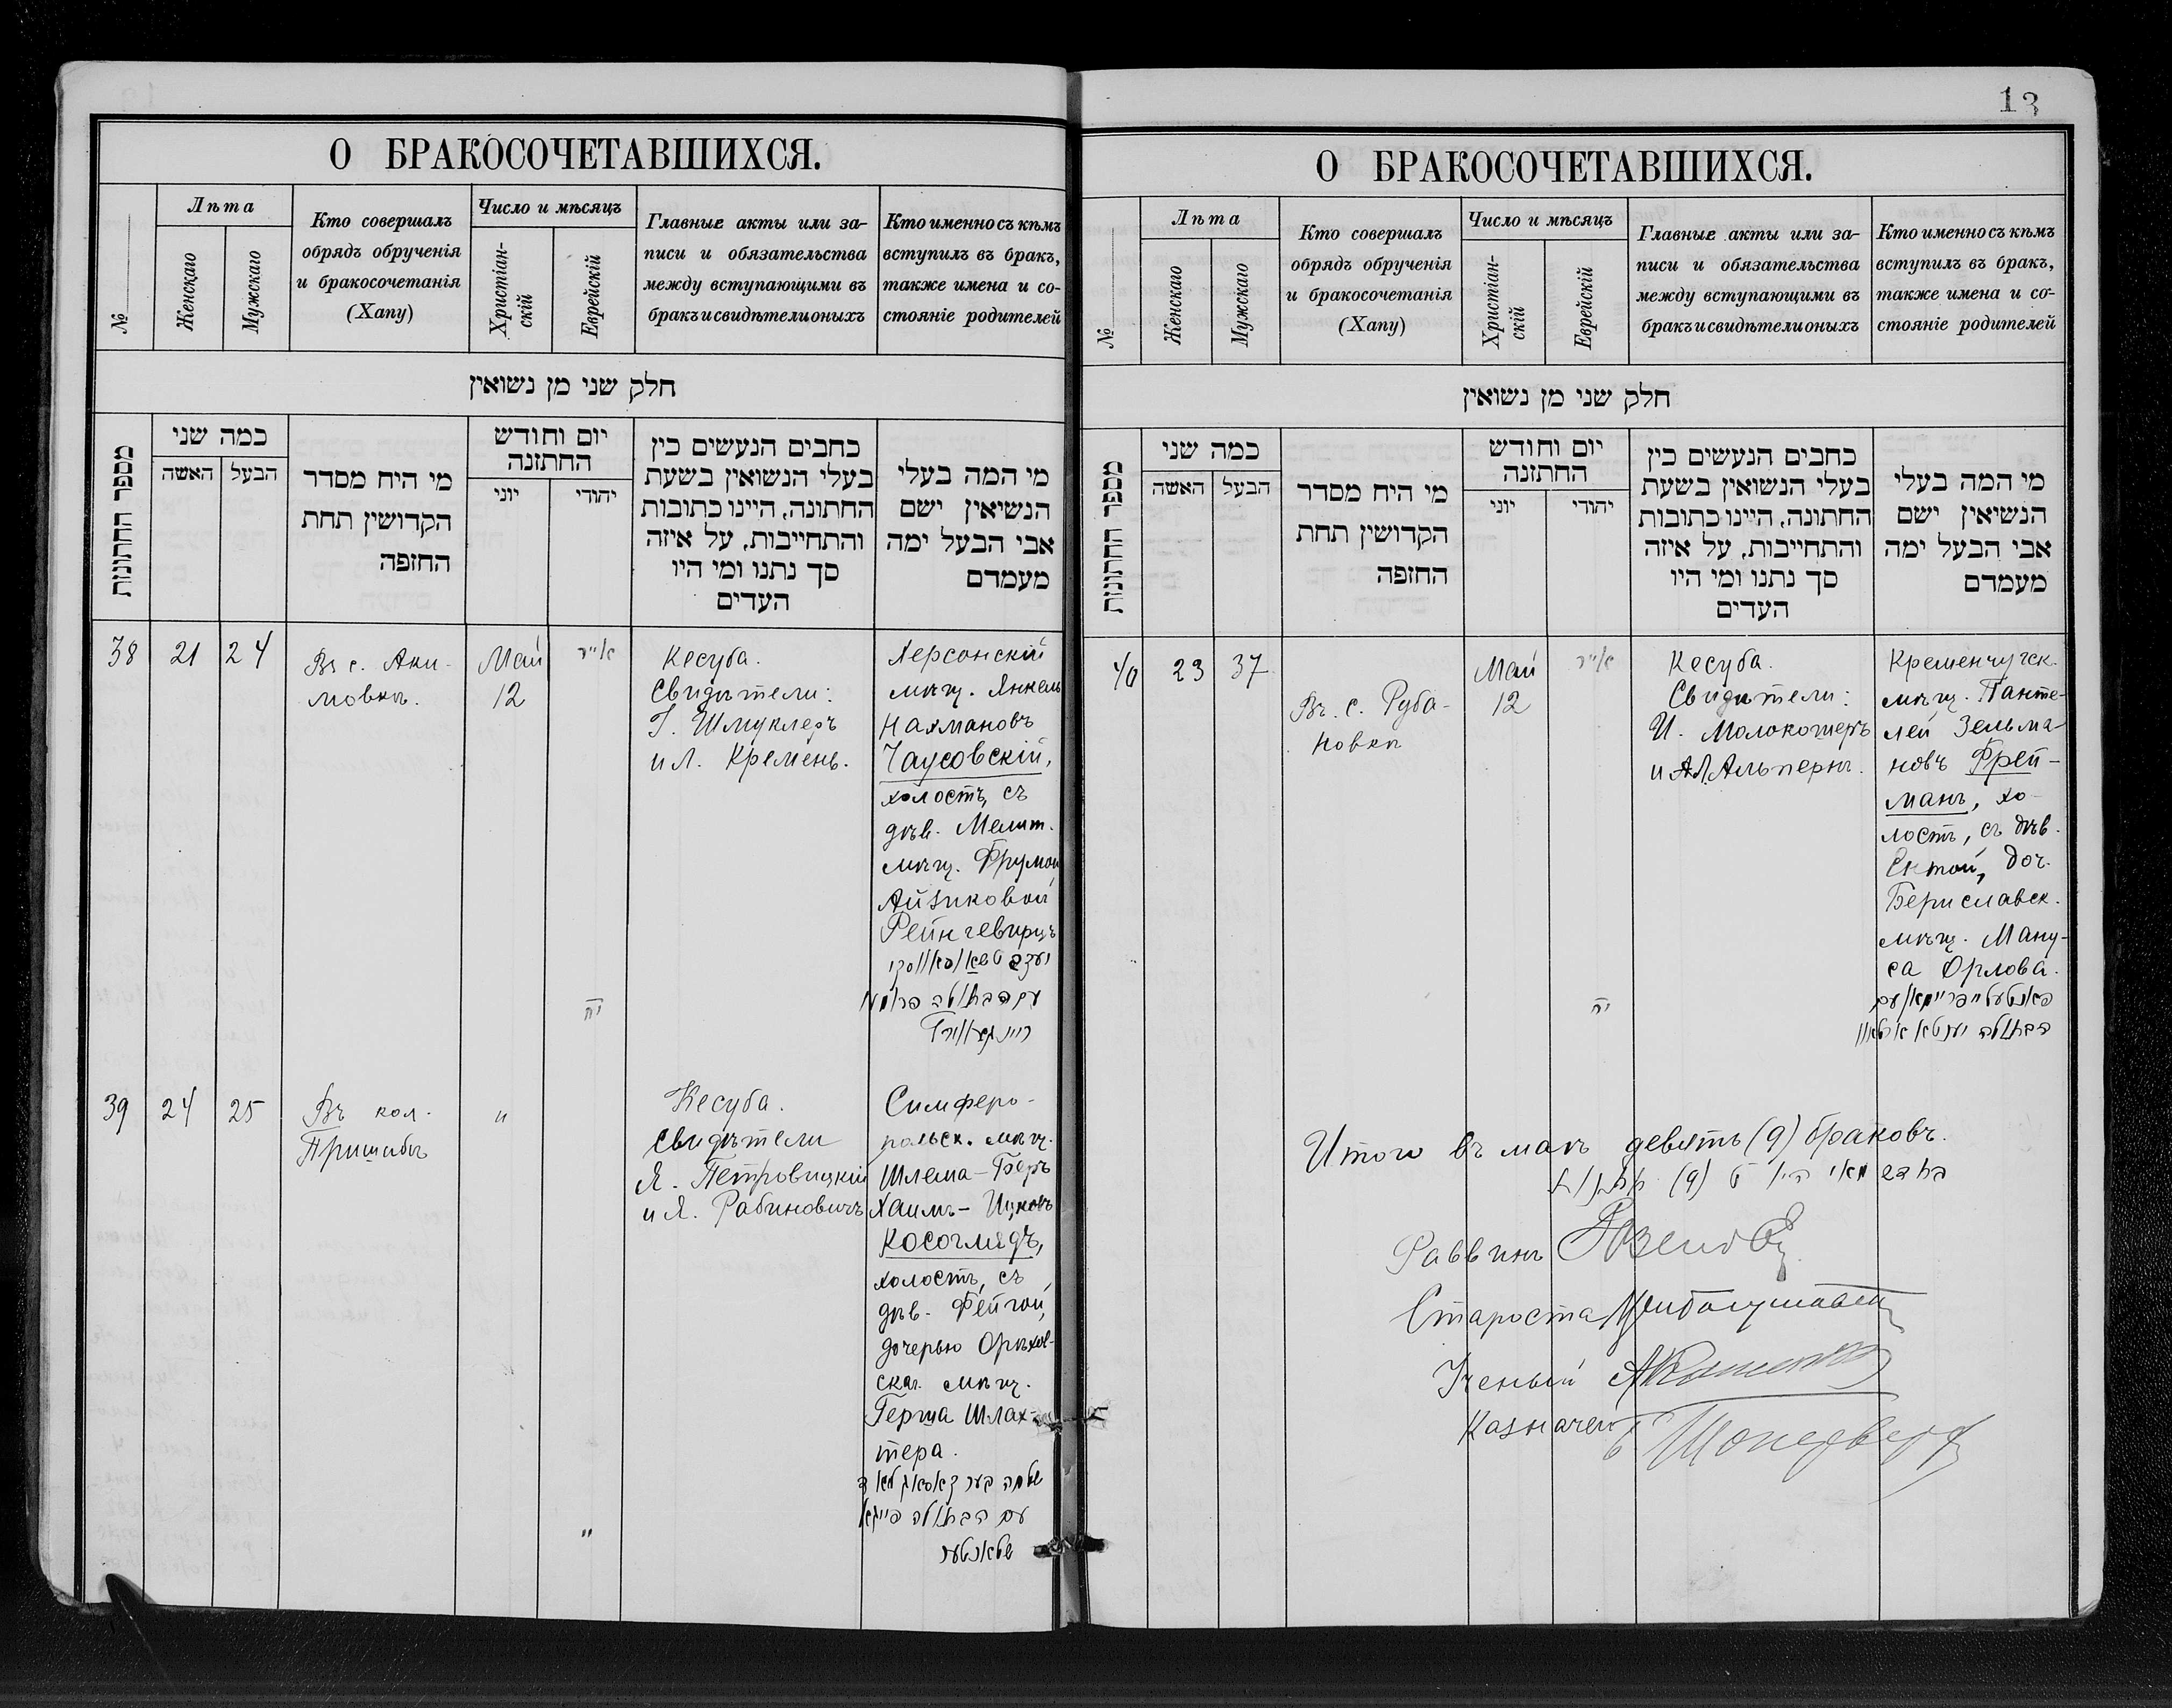 13
О БРАКОСОЧЕТАВШИХСЯ.
№
Лѣта
Женскаго
Мужскаго
Кто совершалъ
обрядъ обрученія
и бракосочетанія
(Хапу)
Число и мѣсяцъ
Христіан-
скій
Еврейскій
Главные акты или за-
писи и обязательства
между вступающими въ
бракъ и свидѣтели оныхъ
Кто именно съ кѣмъ
вступилъ въ бракъ,
также имена и со-
стояніе родителей
חלק שני מן נשואין
מספר החתונות
כמה שני
האשה
הבעל
מי היח מסדר
הקדושין תחת
החזפה
יום וחודש
החתזנה
יוני
יהודי
כחבים הנעשים כין
בעלי הנשואין בשעת
החתונה, היינו כתובות
והתחייבות, על איזה
סך נתנו ומי היו
העדים
מי המה בעלי
הנשיאין ישם
אבי הבעל ימה
מעמדם
38
21
24
Въ с. Аки-
мовкѣ.
Май
12
אייר
יח
Кесуба.
Свидѣтели:
Г. Шмуклеръ
и Л. Кремень.
Херсонскій
мѣщ. Янкель
Нахмановъ
Чаусовскій,
холостъ, съ
дѣв. Мелит.
мѣщ. Фрумой
Айзиковой
Рейнгевирцъ
עם הבתולה פרומא
39
24
25
Въ кол.
Пришибъ
"
"
Кесуба.
Свидѣтели
Я. Петровицкій
и Я. Рабиновичъ
Симферо-
польск. мѣщ.
Шлема-Беръ
Хаимъ-Ицковъ
Косоглядъ,
холостъ, съ
дѣв. Фейгой,
дочерью Орѣхов-
скаг. мѣщ.
Герша Шлах-
тера.
שלמה בער קאסאגלאד
עם הבתולה פייגא
שלאכטער
О БРАКОСОЧЕТАВШИХСЯ.
№
Лѣта
Женскаго
Мужскаго
Кто совершалъ
обрядъ обрученія
и бракосочетанія
(Хапу)
Число и мѣсяцъ
Христіан-
скій
Еврейскій
Главные акты или за-
писи и обязательства
между вступающими въ
бракъ и свидѣтели оныхъ
Кто именно съ кѣмъ
вступилъ въ бракъ,
также имена и со-
стояніе родителей
חלק שני מן נשואין
מספר החתונות
כמה שני
האשה
הבעל
מי היח מסדר
הקדושין תחת
החזפה
יום וחודש
החתזנה
יוני
יהודי
כחבים הנעשים כין
בעלי הנשואין בשעת
החתונה, היינו כתובות
והתחייבות, על איזה
סך נתנו ומי היו
העדים
מי המה בעלי
הנשיאין ישם
אבי הבעל ימה
מעמדם
40
23
37
Въ. с. Руба-
новкѣ
Май
12
אייר
יח
Кесуба.
Свидѣтели:
И. Молокотеръ
и Альпернъ.
Кременчугск.
мѣщ. Панте-
лей Зельма-
новъ Фрей-
манъ, хо-
лостъ, съ дѣв.
Ектой, доч.
Бериславск.
мѣщ. Ману-
са Орлова.
הבתולה יעטא ארלאוו
Итого въ маѣ девять (9) браковъ.
בחדש מאי היו ט (9) חתונות
Раввинъ
Староста
Ученый
Казначей